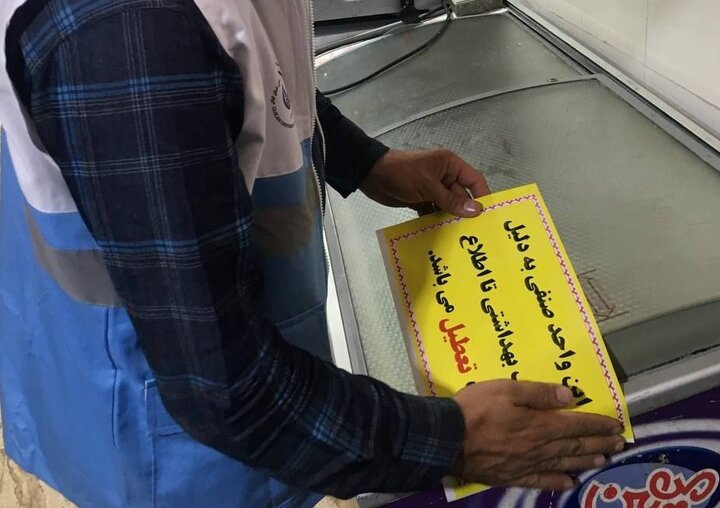 این واحد صنفی به دلیل
بهداشتی تا اطلاع
تعطیل می باشد.
میهن